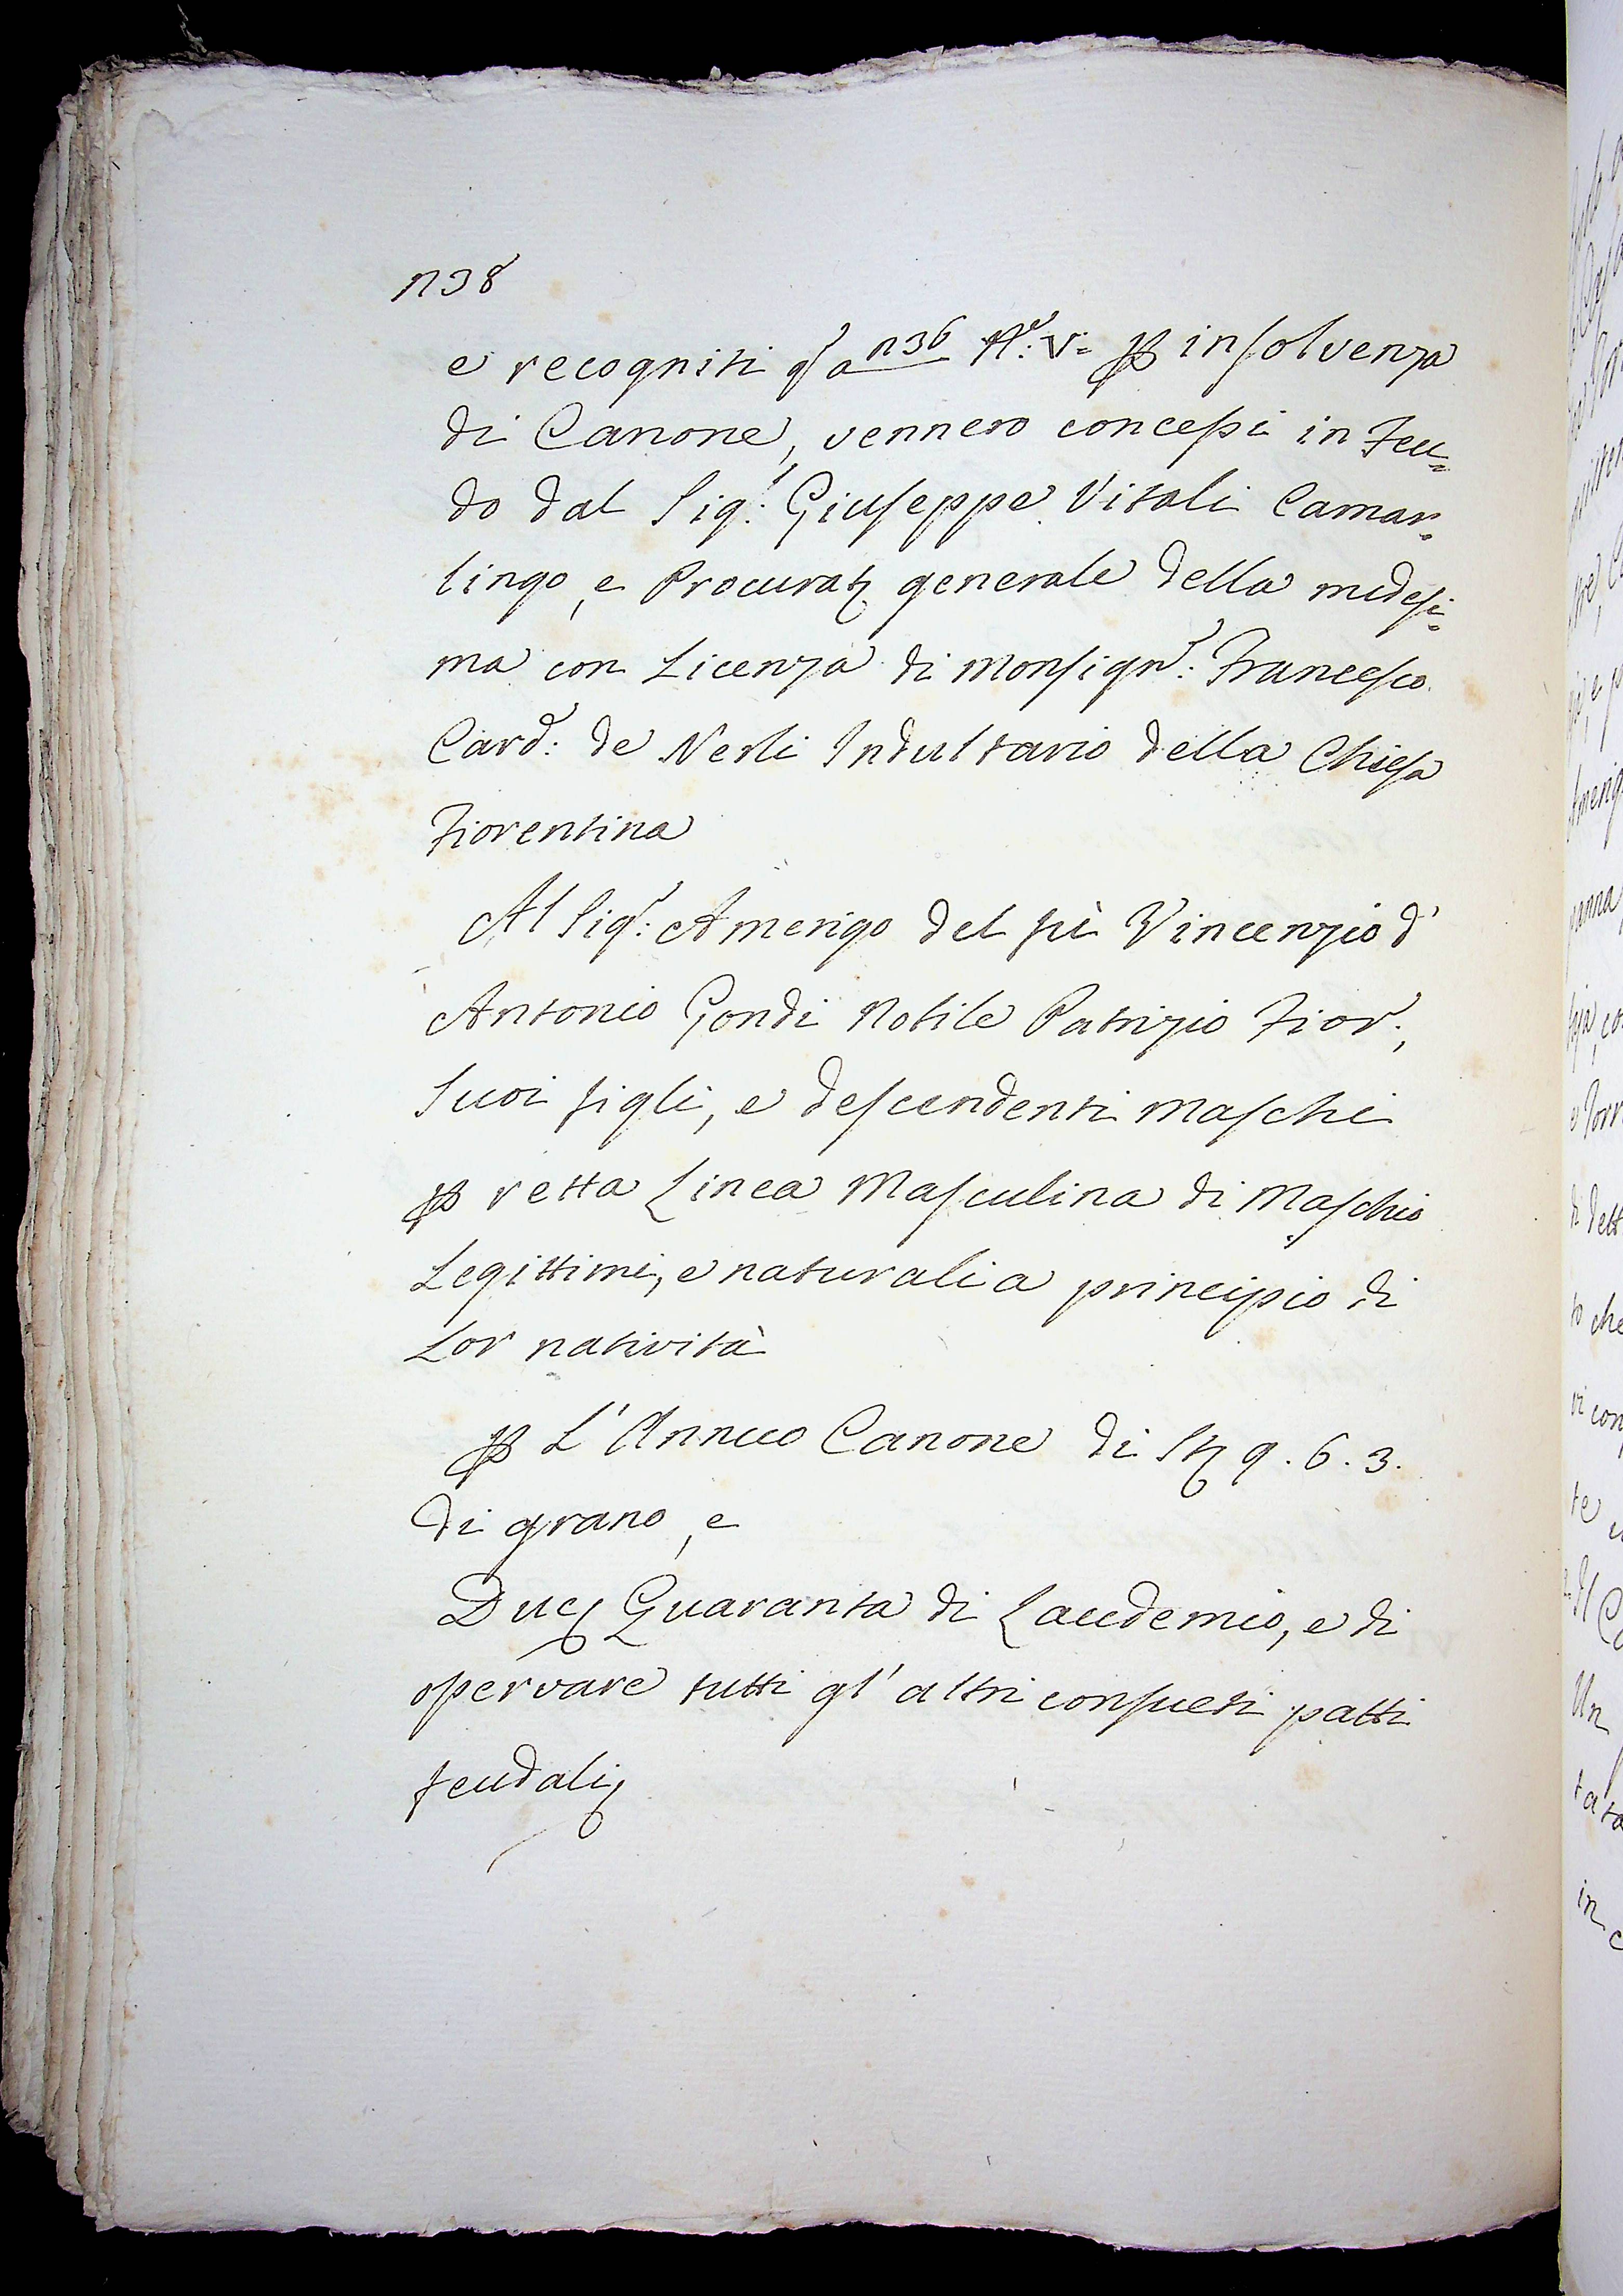 n38
e recogniti qſa n36 Nº: V: ꝑ inſolvenza
di Canone, vennero conceſsi in Feu=
do dal Sigʳ: Giuſeppe Vitali Camar=
lingo, e Procurat generale della medeſi=
ma con Licenza di Monſignʳ: Franceſco
Cardˡ: de Nerli Indultario della Chieſa
Fiorentina
Al Sigʳ: Amerigo del fù Vincenzio d'
Antonio Gondi Nobile Patrizio Fiorº;
Suoi figli, e deſcendenti Maſchi
ꝑ retta Linea Maſculina di Maſchio
Legittimi, e naturali a principio di
Lor natività
ꝑ L'Annuo Canone di St 9. 6. 3.
di grano, e
Duc Quaranta di Laudemio, e di
oſservare tutti gl'altri conſueti patti
feudali